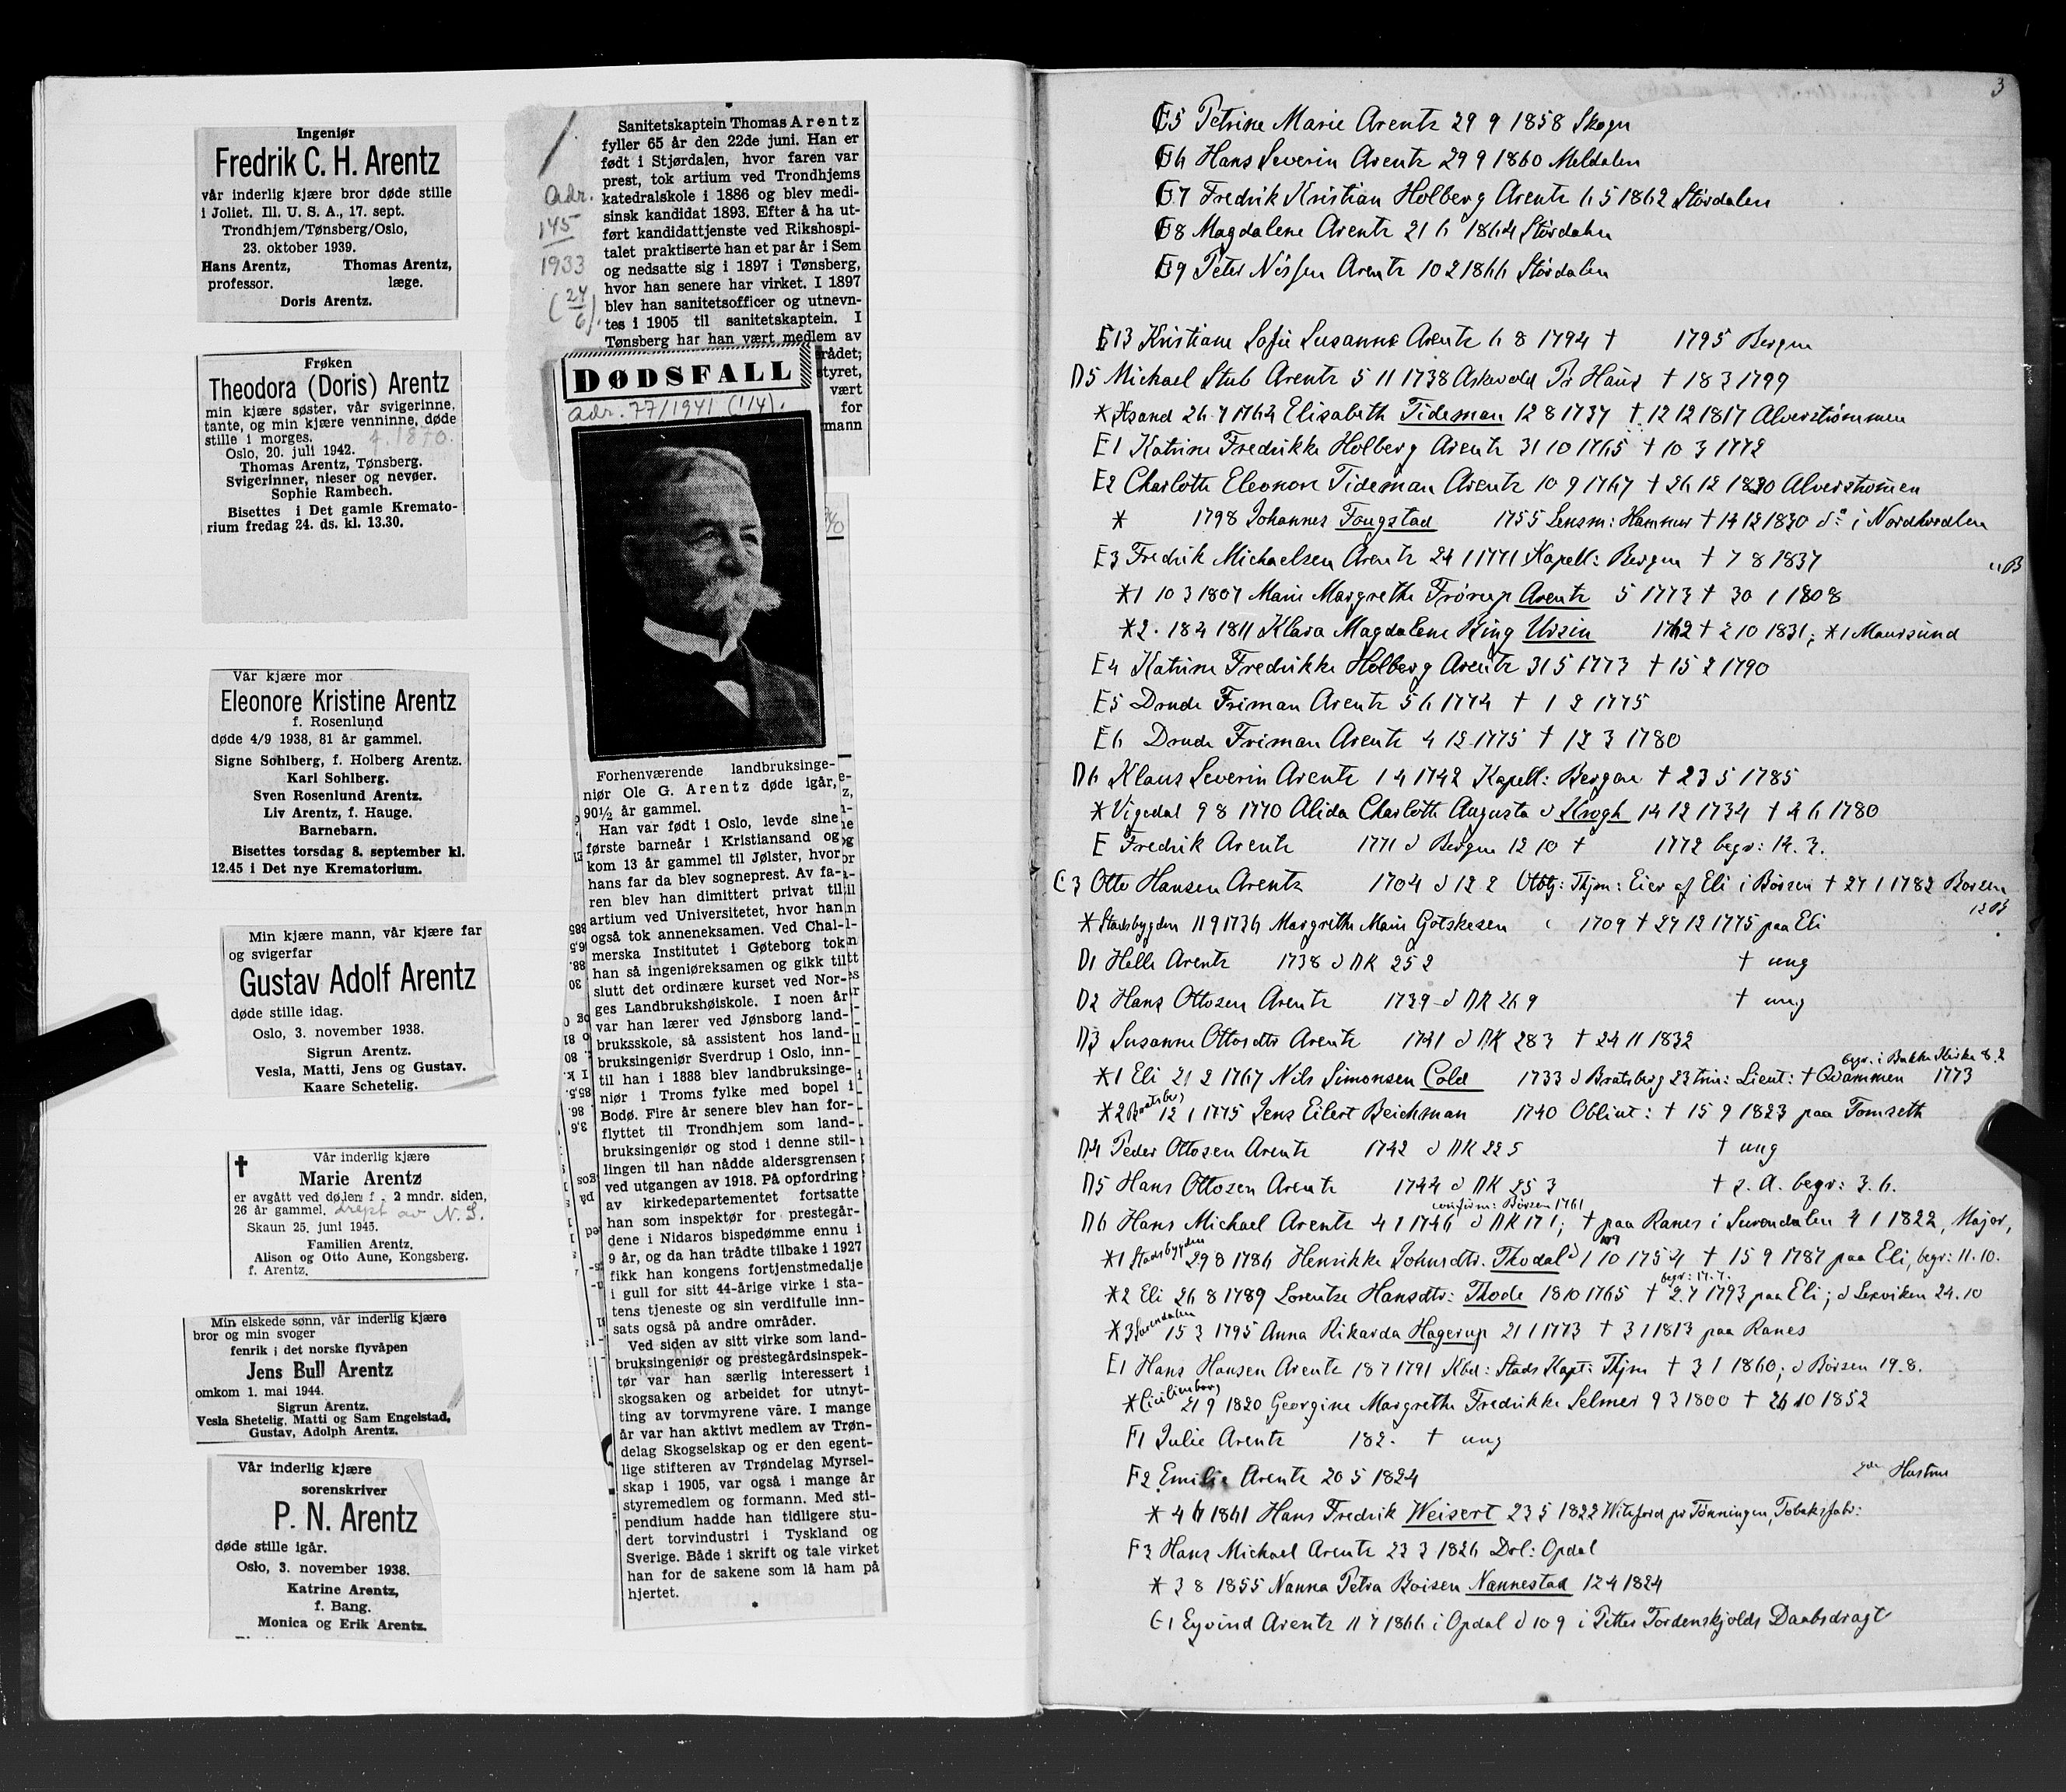 Ingeniør
Fredrik C. H. Arentz
vår inderlig kjære bror døde stille
i Joliet. Ill. U. S. A., 17. sept.
Trondhjem/Tønsberg/Oslo,
23. oktober 1939.
Hans Arentz, Thomas Arentz,
professor. læge.
Doris Arentz.
Frøken
Theodora (Doris) Arentz
min kjære søster, vår svigerinne,
tante, og min kjære venninne, døde
stille i morges. f. 1870.
Oslo, 20. juli 1942.
Thomas Arentz, Tønsberg.
Svigerinner, nieser og nevøer.
Sophie Rambech.
Bisettes i Det gamle Kremato-
rium fredag 24. ds. kl. 13.30.
Vår kjære mor
Eleonore Kristine Arentz
f. Rosenlund
døde 4/9 1938, 81 år gammel.
Signe Sohlberg, f. Holberg Arentz.
Karl Sohlberg.
Sven Rosenlund Arentz.
Liv Arentz, f. Hauge.
Barnebarn.
Bisettes torsdag 8. september kl.
12.45 i Det nye Krematorium.
Min kjære mann, vår kjære far
og svigerfar
Gustav Adolf Arentz
døde stille idag.
Oslo, 3. november 1938.
Sigrun Arentz.
Vesla, Matti, Jens og Gustav.
Kaare Schetelig.
Vår inderlig kjære
Marie Arentz
er avgått ved døden f. 2 mndr. siden,
26 år gammel. drept av N.S.
Skaun 25. juni 1945.
Familien Arentz,
Alison og Otto Aune, Kongsberg.
f. Arentz.
Min elskede sønn, vår inderlig kjære
bror og min svoger
fenrik i det norske flyvåpen
Jens Bull Arentz
omkom 1. mai 1944.
Sigrun Arentz.
Vesla Shetelig, Matti og Sam Engelstad,
Gustav, Adolph Arentz.
Vår inderlig kjære
sorenskriver
P. N. Arentz
døde stille igår.
Oslo, 3. november 1938.
Katrine Arentz,
f. Bang.
Monica og Erik Arentz.
Adr.
145
1933
(24/6).
Sanitetskaptein Thomas Arentz
fyller 65 år den 22de juni. Han er
født i Stjørdalen, hvor faren var
prest, tok artium ved Trondhjems
katedralskole i 1886 og blev medi-
sinsk kandidat 1893. Efter å ha ut-
ført kandidattjenste ved Rikshospi-
talet praktiserte han et par år i Sem
og nedsatte sig i 1897 i Tønsberg,
hvor han senere har virket. I 1897
blev han sanitetsofficer og utnevn-
tes i 1905 til sanitetskaptein. I
Tønsberg har han vært medlem av
rådet;
styret,
vært
for
mann
DØDSFALL
Adr. 77/1941 (1/4).
Forhenværende landbruksinge-
niør Ole G. Arentz døde igår,
90½ år gammel.
Han var født i Oslo, levde sine
første barneår i Kristiansand og
kom 13 år gammel til Jølster, hvor
hans far da blev sogneprest. Av fa-
ren blev han dimittert privat til
artium ved Universitetet, hvor han
også tok anneneksamen. Ved Chal-
merska Institutet i Gøteborg tok
han så ingeniøreksamen og gikk til
slutt det ordinære kurset ved Nor-
ges Landbrukshøiskole. I noen år
var han lærer ved Jønsborg land-
bruksskole, så assistent hos land-
bruksingeniør Sverdrup i Oslo, inn-
til han i 1888 blev landbruksinge-
niør i Troms fylke med bopel i
Bodø. Fire år senere blev han for-
flyttet til Trondhjem som land-
bruksingeniør og stod i denne stil-
lingen til han nådde aldersgrensen
ved utgangen av 1918. På opfordring
av kirkedepartementet fortsatte
han som inspektør for prestegår-
dene i Nidaros bispedømme ennu i
9 år, og da han trådte tilbake i 1927
fikk han kongens fortjenstmedalje
i gull for sitt 44-årige virke i sta-
tens tjeneste og sin verdifulle inn-
sats også på andre områder.
Ved siden av sitt virke som land-
bruksingeniør og prestegårdsinspek-
tør var han særlig interessert i
skogsaken og arbeidet for utnyt-
ting av torvmyrene våre. I mange
år var han aktivt medlem av Trøn-
delag Skogselskap og er den egent-
lige stifteren av Trøndelag Myrsel-
skap i 1905, var også i mange år
styremedlem og formann. Med sti-
pendium hadde han tidligere stu-
dert torvindustri i Tyskland og
Sverige. Både i skrift og tale virket
han for de sakene som lå ham på
hjertet.
3
5 Petrine Marie Arentz 29 9 1858 Skogn
6 Hans Severin Arentz 29 9 1860 Meldalen
7 Fredrik Kristian Holberg Arentz 6 5 1862 Stördalen
8 Magdalene Arentz 21 6 1864 Stördalen
9 Peter Nissen Arentz 10 2 1866 Stördalen
E13 Kristiane Sofie Susanne Arentz 6 8 1794 † 1795 Bergen
D5 Michael Stub Arentz 5 11 1738 Askevold Pr Haus † 18 3 1799
* 26 7 1764 Elisabeth Tideman 12 8 1737 † 12 12 1817 Alverströmmen
E1 Katrine Fredrikke Holberg Arentz 31 10 1765 † 10 3 1772
E2 Charlotte Eleonore Tideman Arentz 10 9 1767 † 26 12 1830 Alverströmen
* 1798 Johannes Fougstad 1755 Lensm: Hammer † 14 12 1830 i Nordhordlen
E3 Fredrik Michaelsen Arentz 24 1 1771 Kapell: Bergen † 7 8 1837
*1 10 3 1807 Marie Margrethe Frörup Arentz 5 1773 † 30 1 1808
*2. 18 4 1811 Klara Magdalene King Ursin † 2 10 1831; *1 Maursund
E4 Katrine Fredrikke Holberg Arentz 31 5 1773 † 15 2 1790
E5 Drude Friman Arentz 5 6 1774 † 1 2 1775
E6 Drude Friman Arentz 4 12 1775 † 12 3 1780
D6 Klaus Severin Arentz 1 4 1742 Kapell: Bergen † 23 5 1785
* Vigedal 9 8 1770 Alida Charlotte Augusta v Krogh 14 12 1734 † 4 6 1780
E Fredrik Arentz 1771 d Bergen 12 10 † 1772 begr: 14. 3.
C3 Otto Hansen Arentz 1704 d 12 2 Thjm: Eier af Eli i Börsen † 27 1 1782 Borsen
* Stadsbygden 11 9 1736 Margrethe Marie Götskesen 1709 † 27 12 1775 paa Eli
D1 Helle Arentz 1738 d DK 25 2 † ung
D2 Hans Ottosen Arentz 1739 d DK 26 9 † ung
D3 Susanne Ottosdtr Arentz 1741 d DK 28 3 † 24 11 1832
begr. i Bakke Kirke 8 2
*1 Eli 21 2 1767 Nils Simonsen Cold 1733 d Bratsberg 23 trin: Lieut: † Qvammen 1773
*2 Bratsberg 12 1 1775 Jens Eilert Beichman 1740 Oblieut: † 15 9 1823 paa Tomseth
D4 Peder Ottosen Arentz 1742 d DK 22 5 † ung
D5 Hans Ottosen Arentz 1744 d DK 25 3 † s. A. begr: 3. 6.
confirm: Börsen 1761
D6 Hans Michael Arentz 4 1 1746 d DK 17 1; † paa Ranes i Surendalen 4 1 1822, Major,
*1 Stadsbygden 29 8 1786 Henrikke Johnsdtr. Thodal 1 10 1754 † 15 9 1787 paa Eli, begr: 11. 10.
begr: 17. 7.
*2 Eli 26 8 1789 Lorentze Hansdtr: Thode 18 10 1765 † 2 7 1793 paa Eli; d Lexviken 24. 10
*3 Surendalen 15 3 1795 Anna Rikarda Hagerup 21 1 1773 † 3 1 1813 paa Ranes
E1 Hans Hansen Arentz 18 7 1791 Kbd: Stads Kapt: Thjm † 3 1 1860; d Börsen 19. 8.
* Cicilienborg 21 9 1820 Georgine Margrethe Fredrikke Selmer 9 3 1800 † 26 10 1852
F1 Julie Arentz 182. † ung
F2 Emilie Arentz 20 5 1824
* 4 6 1861 Hans Fredrik Weisert 23 5 1822 Witsford pr Tönningen, Tobaksfabr:
F3 Hans Michael Arentz 23 3 1826 Drl: Opdal
* 3 8 1855 Nanna Petra Boisen Nannestad 12 4 1824
G1 Eyvind Arentz 11 7 1866 i Opdal d 10 9 i Petter Tordenskjolds Daabsdragt